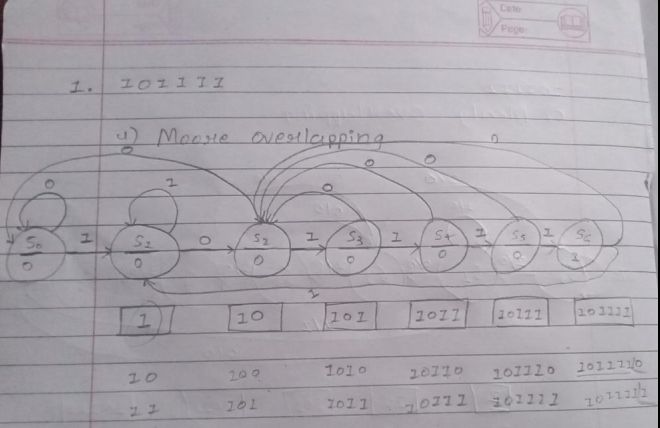 Date
Page
1. 101111
4) Moore overlapping
0 0
0 1 0 0 0
S0 1 S1 0 S2 1 S3 1 S4 1 S5 1 S6
0 0 0 0 0 0 1
1
1 10 101 1011 10111 101111
10 100 1010 10110 101110 1011110
11 101 1011 10111 101111 1011111